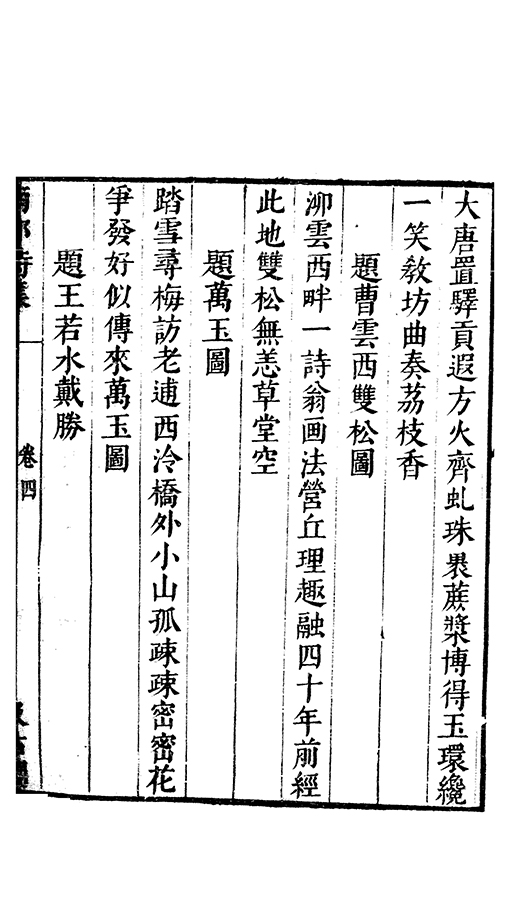 大唐置驛貢遐方火齊虬珠褁蔗漿博得玉環纔
一笑敎坊曲奏荔枝香
題曹雲西雙松圖
泖雲西畔一詩翁画法營丘理趣融四十年前經
此地雙松無恙草堂空
題萬玉圖
踏雪尋梅訪老逋西泠橋外小山孤疎疎密密花
爭發好似傳來萬玉圖
題王若水戴勝
卷四